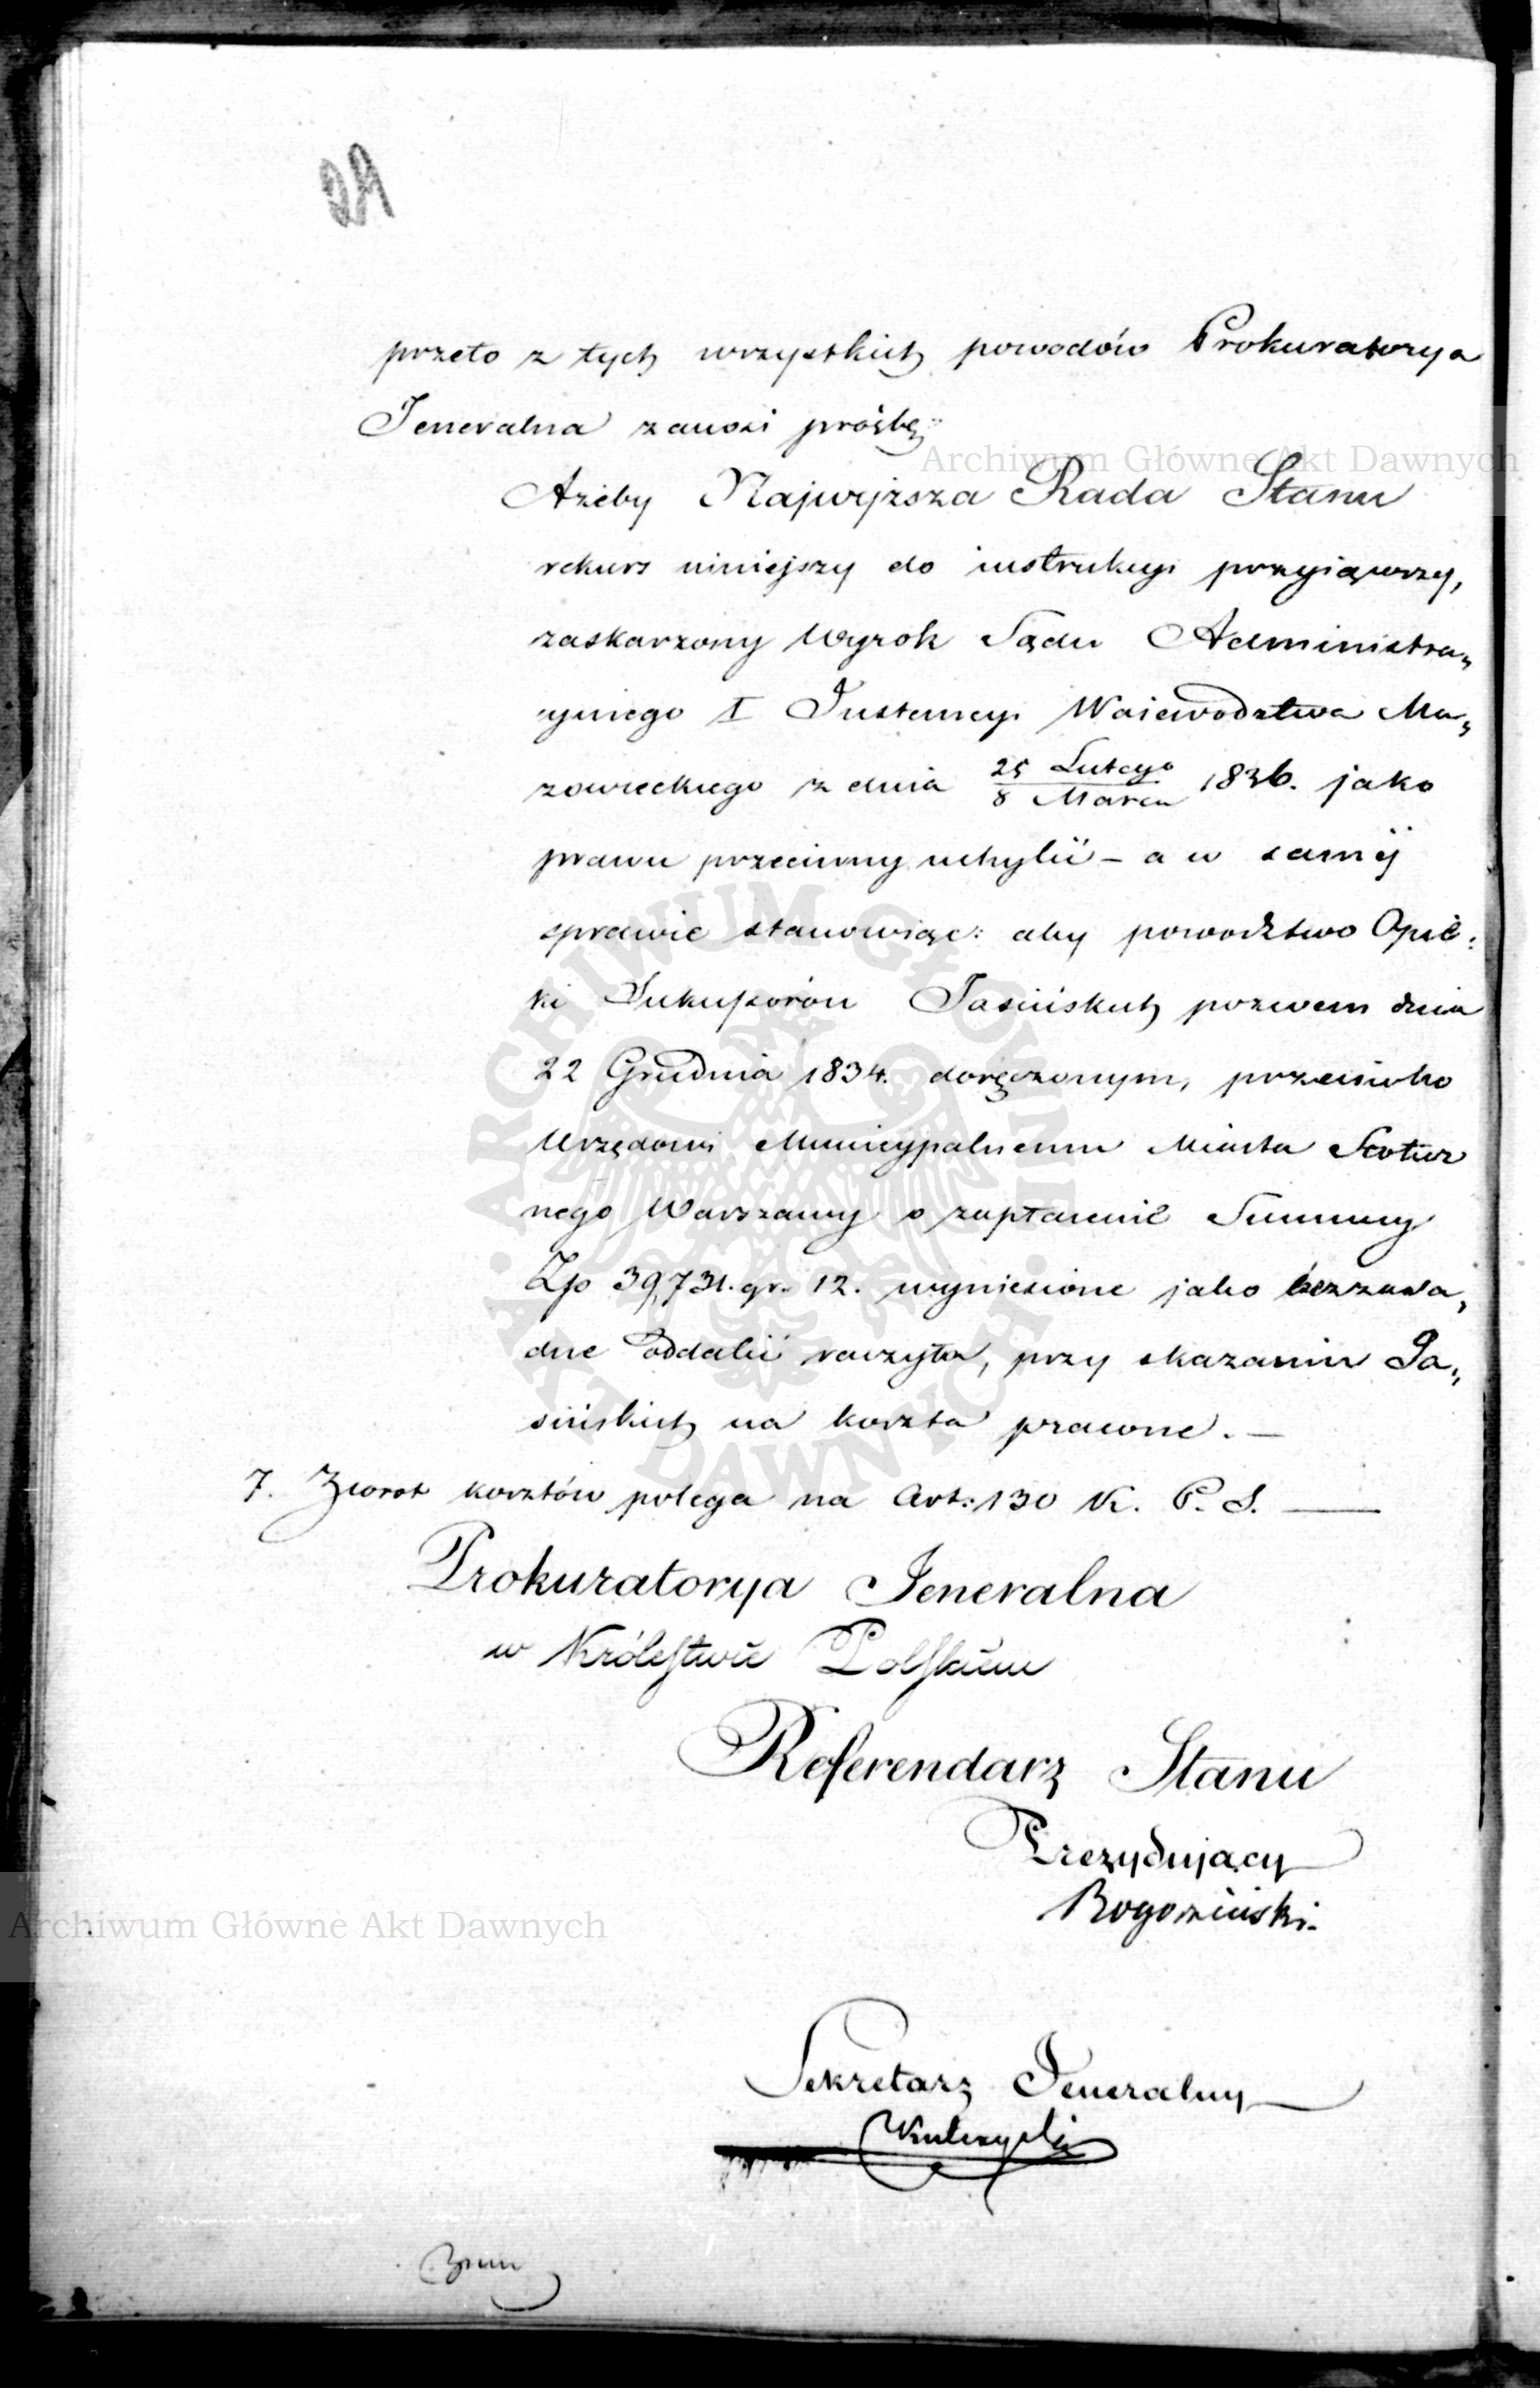 29
przeto z tych wszystkich powodów Prokuratorya
Jeneralna zanosi prośbę
Archiwum Główne Akt Dawnych
Ażeby Najwyższa Rada Stanu
rekurs niniejszy do instrukcyi przyiąwszy,
zaskarżony Wyrok Sądu Administra„
cyinego I Instancyi Woiewodztwa Ma„
zowieckiego z dnia 25 Lutego / 8 Marca 1836. jako
prawu przeciwny uchylić – a w saméj
sprawie stanowiąc: aby powodztwo Opie:
ki Sukcessorów Jasińskich pozwem dnia
22 Grudnia 1834. doręczonym, przeciwko
Urzędowi Municypalnemu Miasta Stołecz
nego Warszawy o zapłacenie Summy
Zp 39,731. gr. 12. wyniesione jako bezzasa„
dne oddalić raczyła, przy skazaniu Ja„
sińskich na koszta prawne. —
7. Zwrot kosztów polega na Art. 130 K. P. S. —
Prokuratorya Jeneralna
w Królestwie Polskiem
Referendarz Stanu
Prezydujący
Rogoziński.
Archiwum Główne Akt Dawnych
Sekretarz Jeneralny
Kulczycki
ARCHIWUM GŁÓWNE · AKT DAWNYCH ·